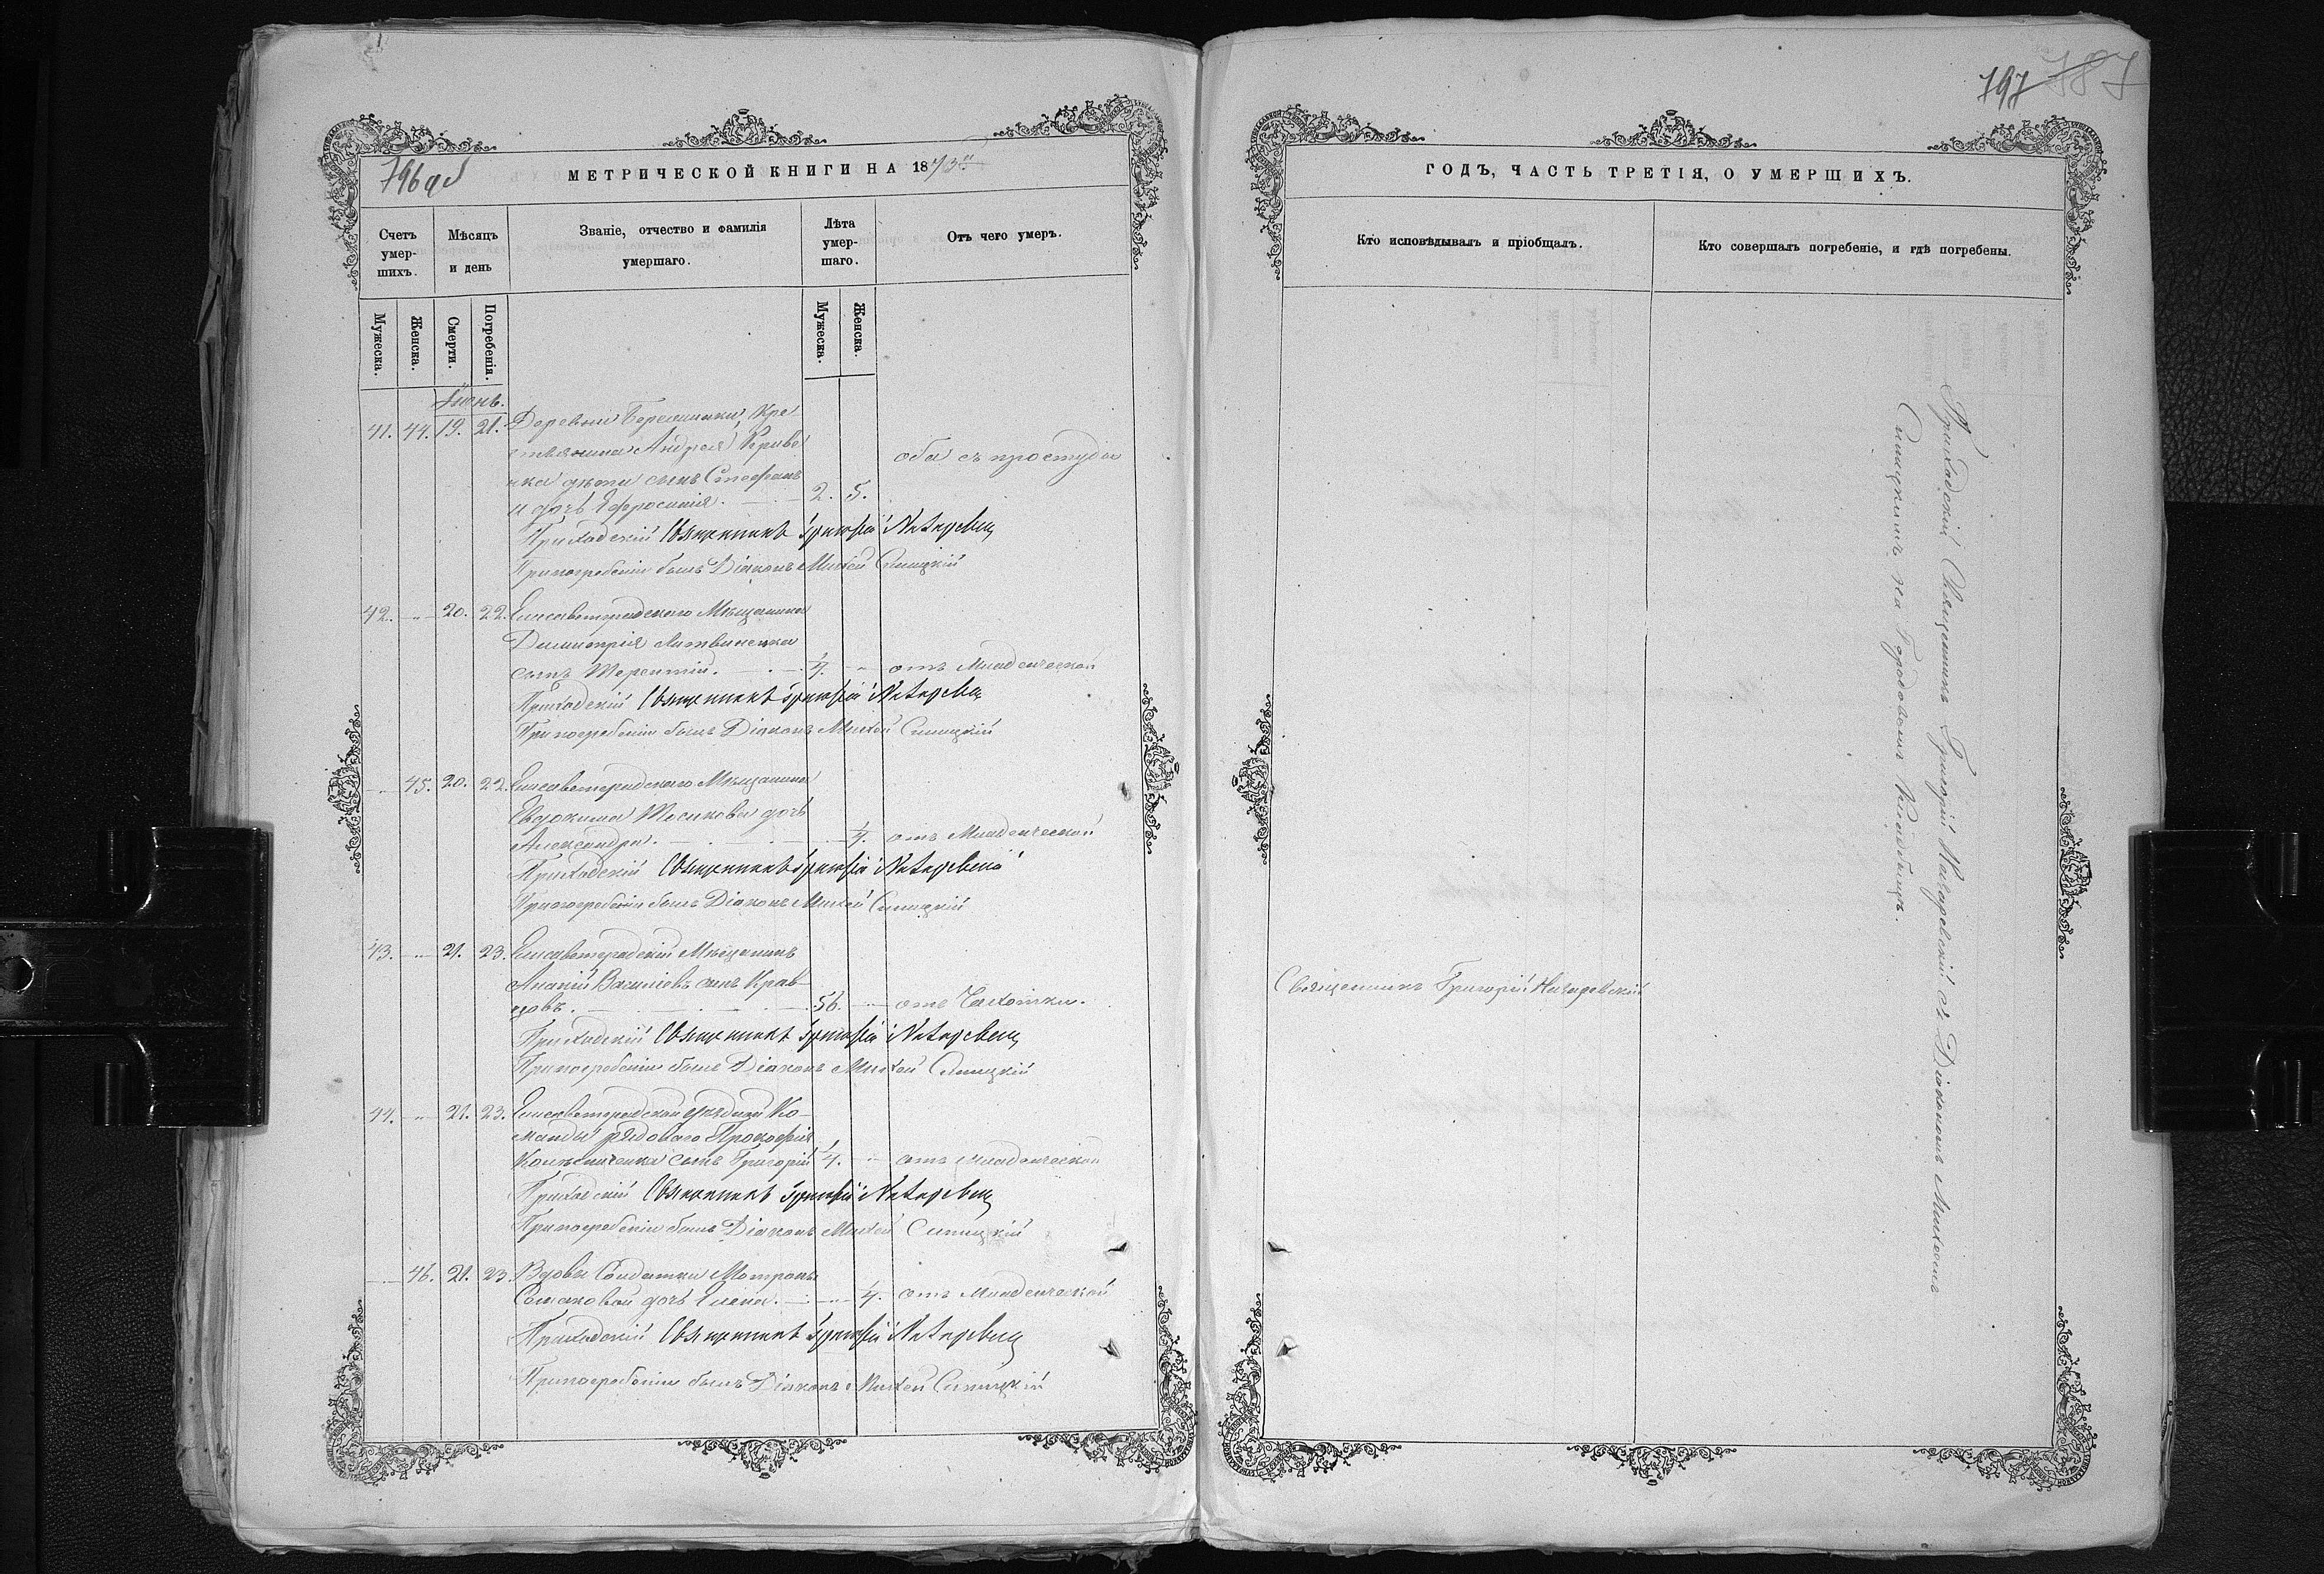 796 об
МЕТРИЧЕСКОЙ КНИГИ НА 1873
Счетъ умер-шихъ.
Мѣсяцъ и день
Званіе, отчество и фамилія умершаго.
Лѣта умер-шаго.
Отъ чего умеръ.
Мужеска.
Женска.
Смерти.
Погребенія.
Мужеска.
Женска.
Іюнь.
41. 44. 19. 21. Деревни Крес
тьянина Андрея
дѣти сынъ Стефанъ
и дочь Ефросинія. 2. 5. оба съ простуды
Приходскій Священникъ Григорій
При погребеніи былъ Діаконъ Михей Синицкій
42. 20. 22. Елисаветградскаго Мѣщанина
Димитрія Литвиненка
сынъ Терентій. 1/4. отъ Младенческой
Приходскій Священникъ Григорій
При погребеніи былъ Діаконъ Михей Синицкій
45. 20. 22. Елисаветградскаго Мѣщанина
Евдокима дочь
Александра. 1/4. отъ Младенческой
Приходскій Священникъ Григорій
При погребеніи былъ Діаконъ Михей Синицкій
43. 21. 23. Елисаветградскій Мѣщанинъ
Ананій Василіевъ сынъ Крав-
цовъ. 56. отъ Чахотки.
Приходскій Священникъ Григорій
При погребеніи былъ Діаконъ Михей Синицкій
44. 21. 23. Елисаветградской уѣздной Ко-
манды рядоваго Прокофія
сынъ Григорій 1/4. отъ младенческой
Приходскій Священникъ Григорій
При погребеніи былъ Діаконъ Михей Синицкій
46. 21. 23. Вдовы Солдатки Матроны
дочь Елена. 4. отъ Младенческой
Приходскій Священникъ Григорій
При погребеніи былъ Діаконъ Михей Синицкій
797 787
ГОДЪ, ЧАСТЬ ТРЕТІЯ, О УМЕРШИХЪ.
Кто исповѣдывалъ и пріобщалъ.
Кто совершалъ погребеніе, и гдѣ погребены.
Священникъ Григорій
Приходскій Священникъ Григорій съ Діакономъ Михеемъ
Синицкимъ на Городскомъ Кладбищѣ.